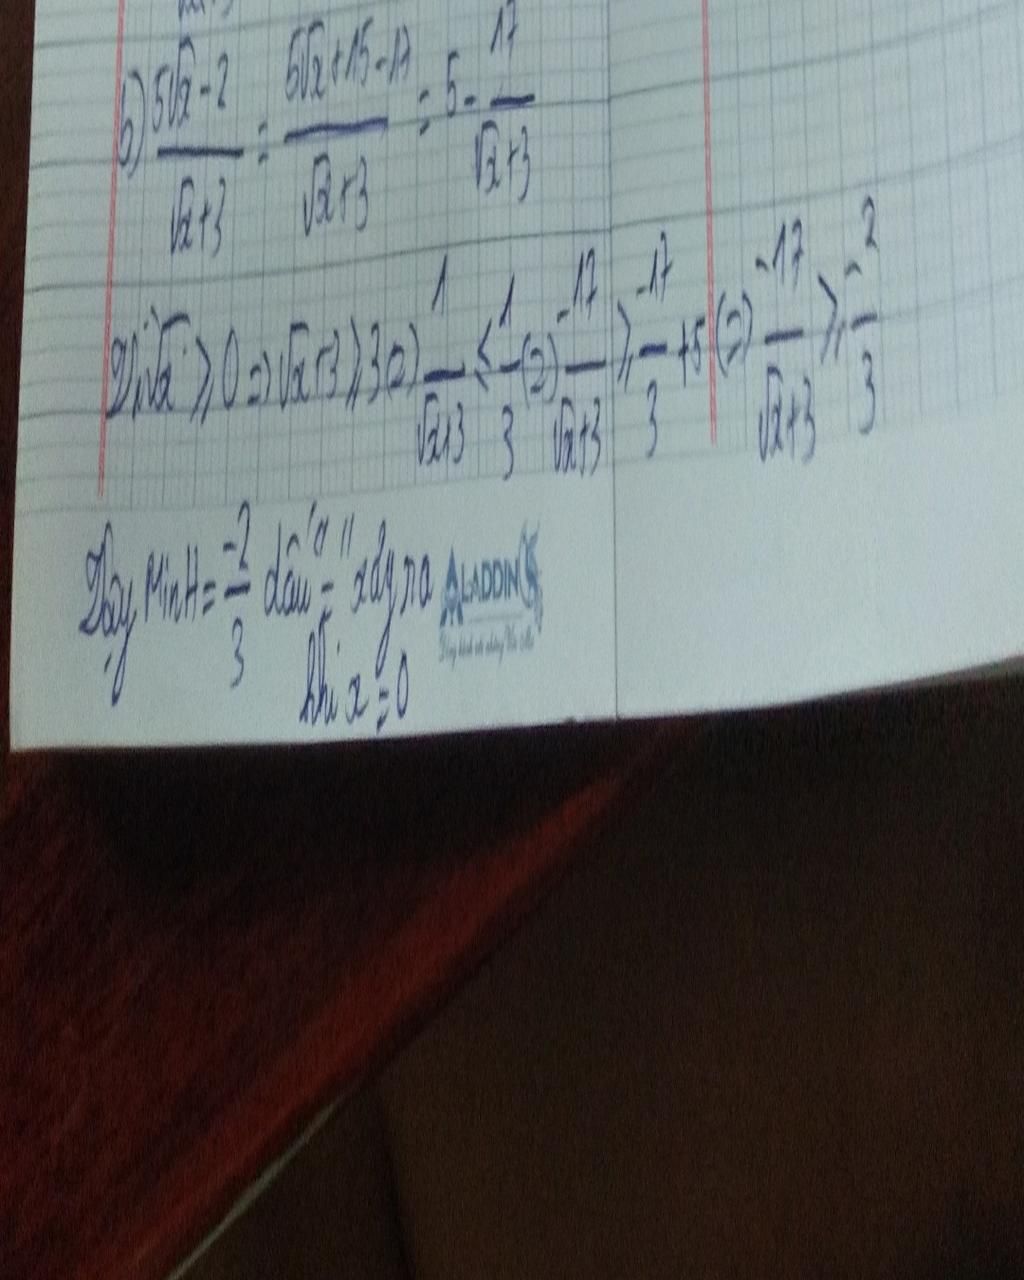 b) (5√x - 2)/(√x+3) = (5√x+15-17)/(√x+3) = 5 - 17/(√x+3)
Vì √x ≥ 0 => √x+3 ≥ 3 => 1/(√x+3) ≤ 1/3 (=) -17/(√x+3) ≥ -17/3 +5 (=) -17/(√x+3) ≥ -2/3
Vậy MinH = -2/3 dấu "=" xảy ra
khi x = 0
ALADDIN